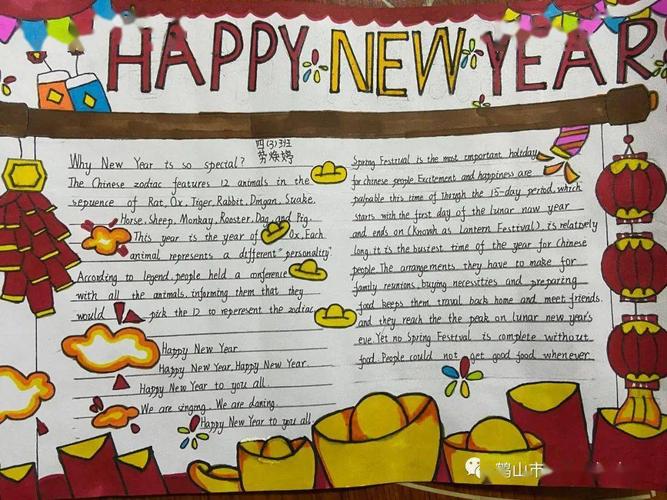 HAPPY NEW YEAR
四(3)班
劳焕婷
Why New Year is so special?
The Chinese zodiac features 12 animals in the
sepuence of Rat, Ox, Tiger, Rabbit, Dmgan, Suake,
Horse, Sheep, Monkay, Rooster, Dag, and Pig.
This year is the year of Ox. Each
animal represents a different "personality"
According to legend, people held a conference
with all the animals, informing them that they
would pick the 12 to represent the zodiac
Happy New Year
Happy New Year, Happy New Year
Happy New Year to you all.
We are singing. We are daning.
Happy New Year to you all
Spring Festival is the most important holiday
for chinese people Excitement and happiness are
palpable this time of Through the 15-day period, which
starts with the first day of the lunar naw year
and ends on (Known as Lantern Festival), is relatively
long it is the busiest time of the year for Chinese
people The arrangements they have to make for
family reunions, buying necessities and preparing
food keeps them travel back home and meet friends.
and they reach the the peak on lunar new year's
eve. Yet no Spring Festival is complete without
food. People could not get good food whenever
鹤山市